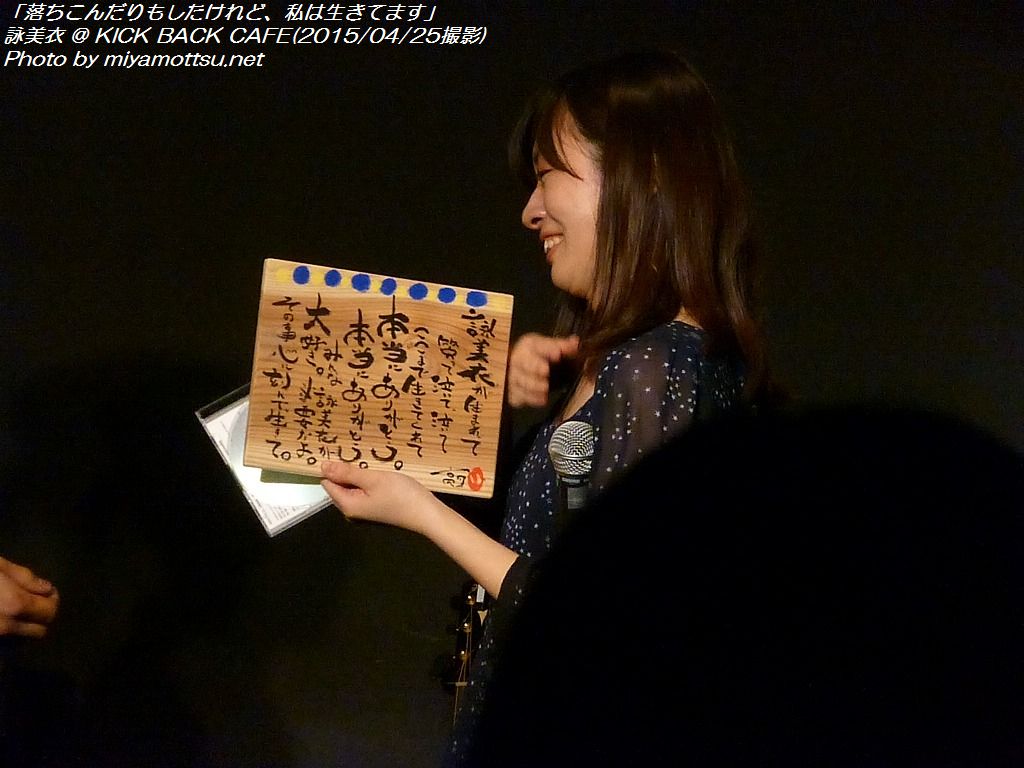 「落ちこんだりもしたけれど、私は生きてます」
詠美衣 @ KICK BACK CAFE(2015/04/25撮影)
Photo by miyamottsu.net
詠美衣が生まれて
笑って泣いて泣いて
ここまで生きてくれて
本当にありがとう。
本当にありがとう。
みんな詠美衣が
大好き。必要だよ。
その事心に刻んで生きて。